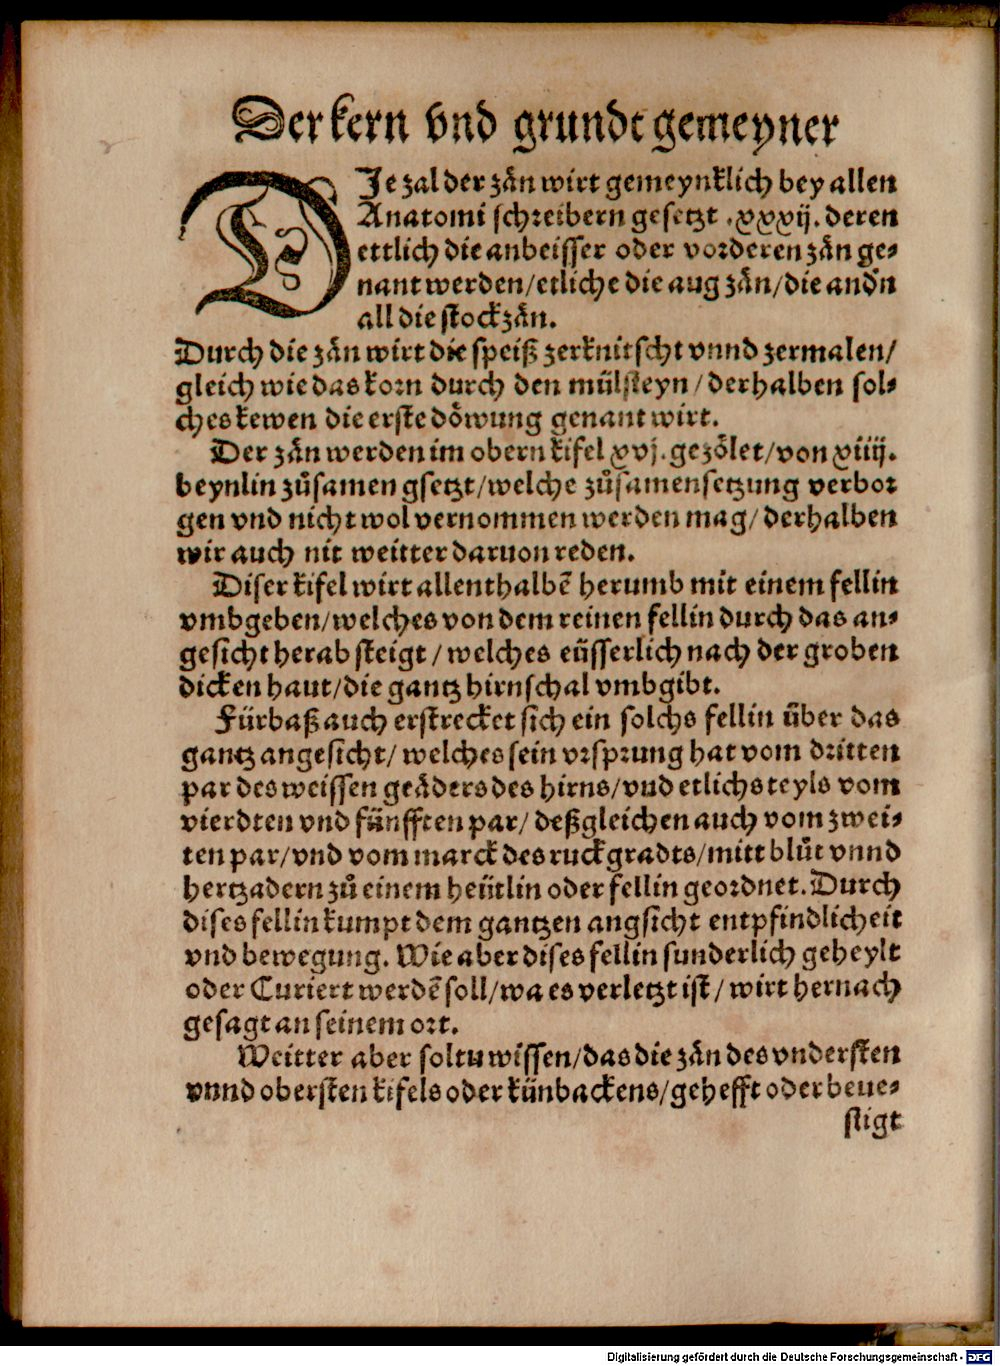 Der kern vnd grundt gemeyner
DIe zal der zän wirt gemeynklich bey allen
Anatomi schreibern gesetzt .xxxij. deren
ettlich die anbeisser oder vorderen zän ge⸗
nant werden/etliche die aug zän/die andn̄
all die stockzän.
Durch die zän wirt die speiß zerknitscht vnnd zermalen/
gleich wie das korn durch den mülsteyn/derhalben sol⸗
ches kewen die erste döwung genant wirt.
Der zän werden im obern kifel xvj. gezölet/von xiiij.
beynlin zůsamen gsetzt/welche zůsamensetzung verbor
gen vnd nicht wol vernommen werden mag/derhalben
wir auch nit weitter daruon reden.
Diser kifel wirt allenthalbē herumb mit einem fellin
vmbgeben/welches von dem reinen fellin durch das an⸗
gesicht herab steigt/welches eüsserlich nach der groben
dicken haut/die gantz hirnschal vmbgibt.
Fürbaß auch erstrecket sich ein solchs fellin über das
gantz angesicht/welches sein vrsprung hat vom dritten
par des weissen geäders des hirns/vnd etlichs teyls vom
vierdten vnd fünfften par/deßgleichen auch vom zwei⸗
ten par/vnd vom marck des ruckgradts/mitt blůt vnnd
hertzadern zů einem heütlin oder fellin geordnet. Durch
dises fellin kumpt dem gantzen angsicht entpfindlicheit
vnd bewegung. Wie aber dises fellin sunderlich geheylt
oder Curiert werdē soll/wa es verletzt ist/wirt hernach
gesagt an seinem ort.
Weitter aber soltu wissen/das die zän des vndersten
vnnd obersten kifels oder künbackens/gehefft oder beue⸗
stigt
Digitalisierung gefördert durch die Deutsche Forschungsgemeinschaft - DFG